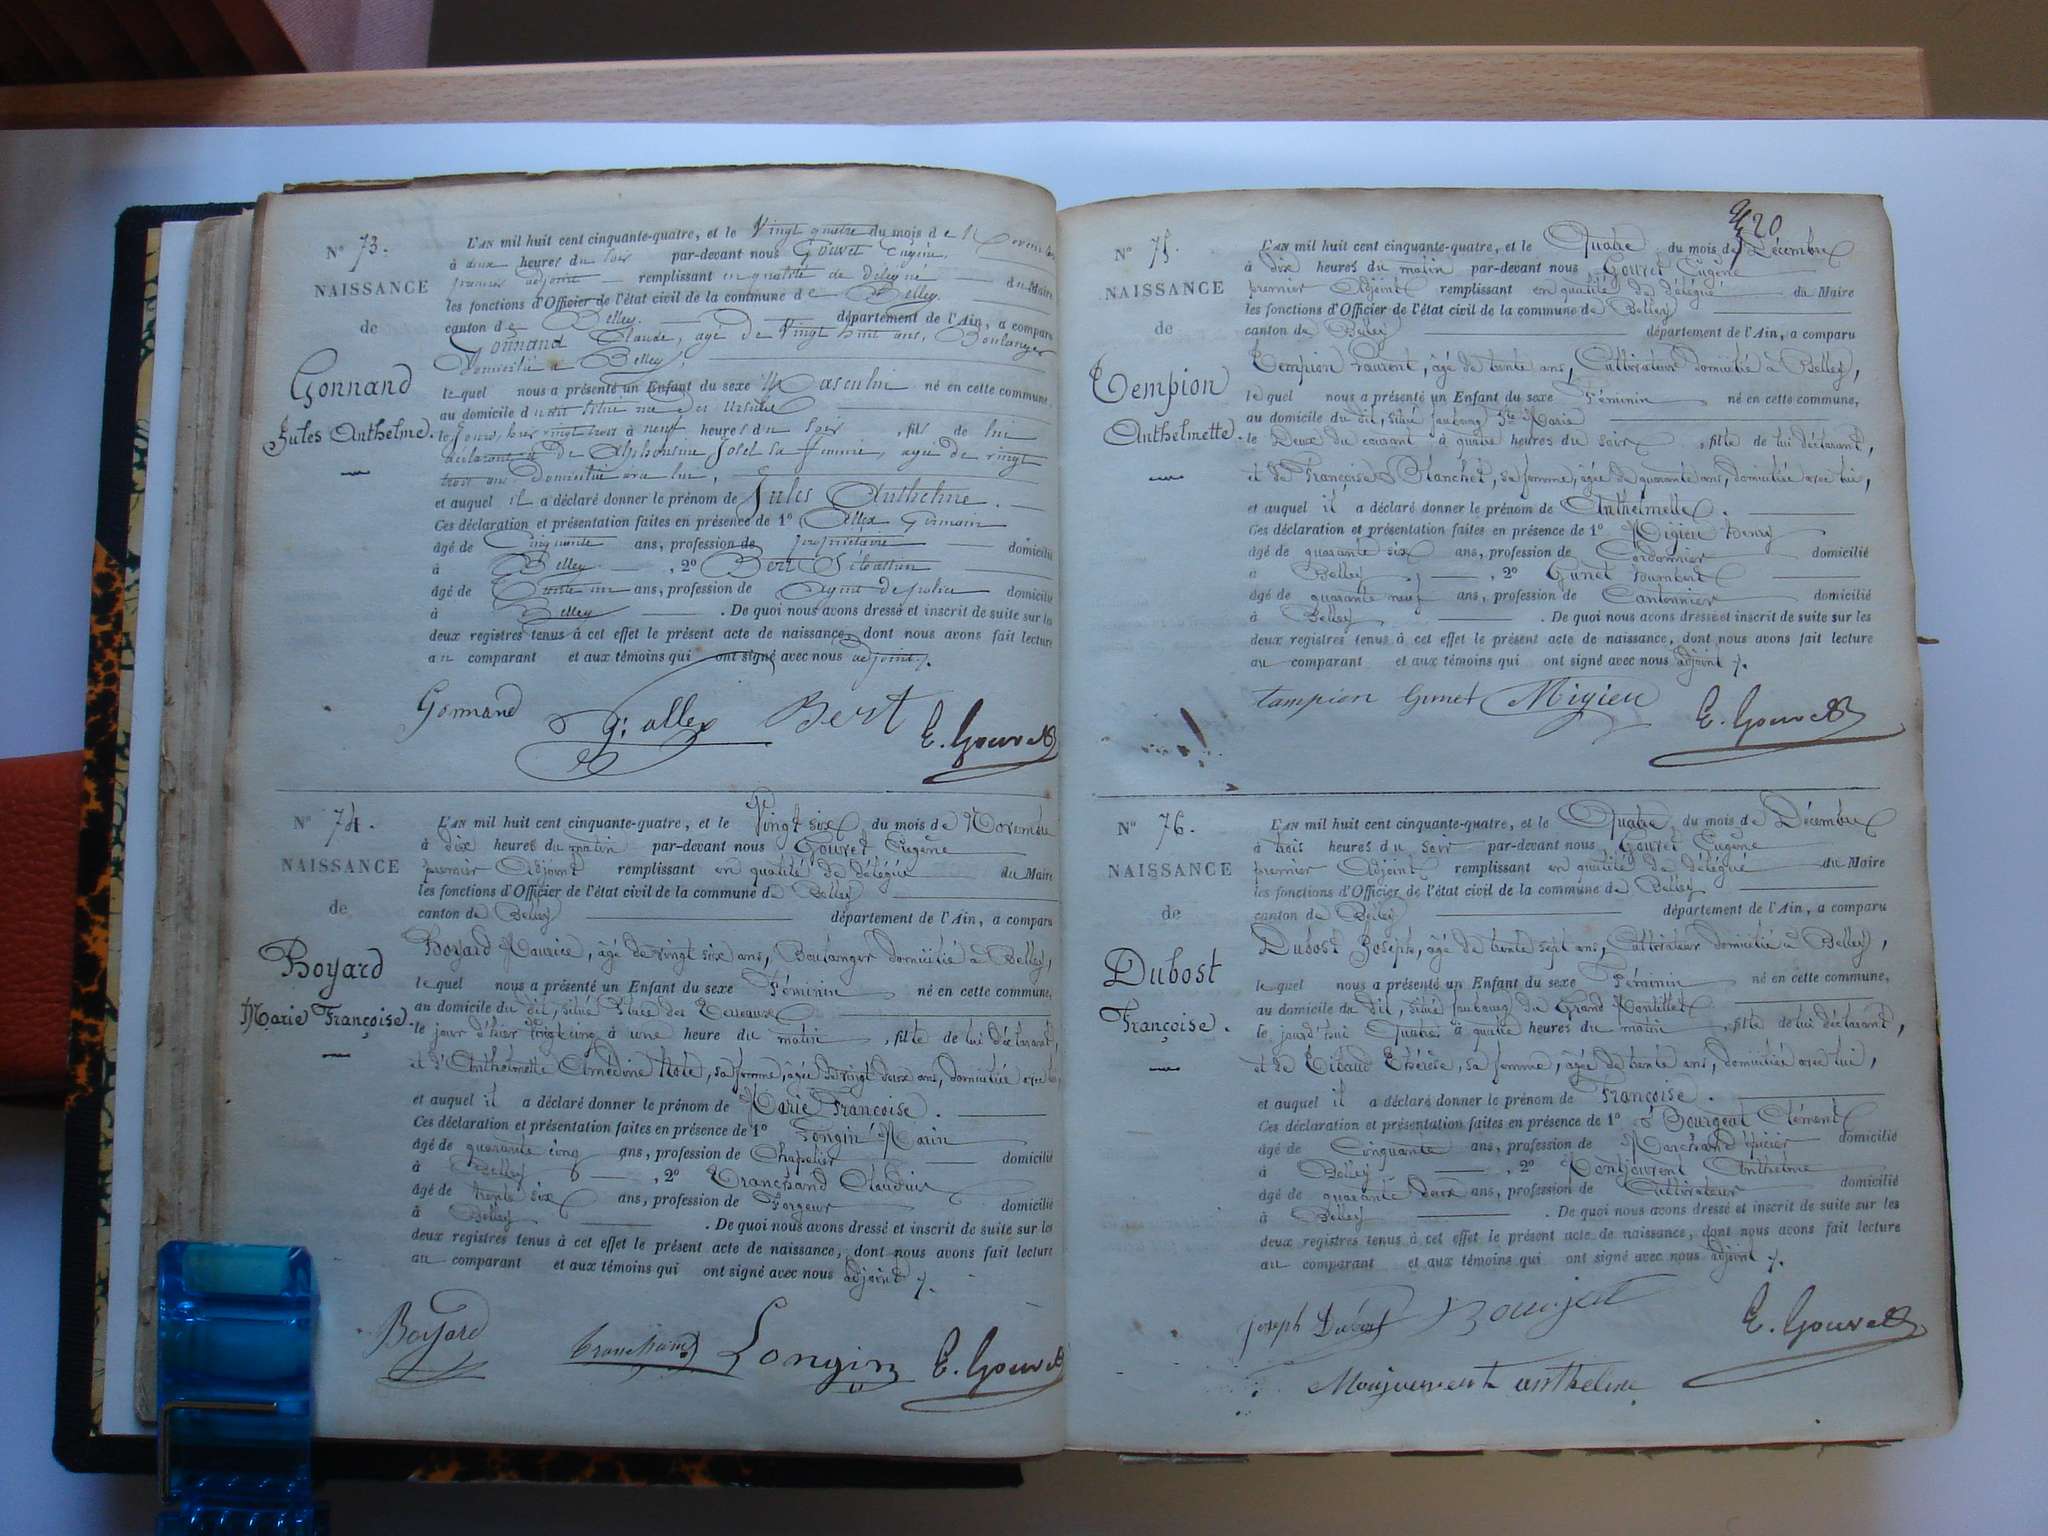 N° 73.
NAISSANCE
de
Gonnand
Jules Anthelme.
L'AN mil huit cent cinquante-quatre, et le Vingt quatre du mois de Novembre
à deux heures du soir par-devant nous Gouvet Eugène,
premier adjoint remplissant en qualité de délégué du Maire
les fonctions d'Officier de l'état civil de la commune de Belley.
canton de Belley. département de l'Ain, a comparu
Gonnand Claude, agé de Vingt huit ans, Boulanger
Domicilié à Belley
lequel nous a présenté un Enfant du sexe Masculin né en cette commune,
au domicile du dit situé rue des Ursules
le jour, hier vingt trois à neuf heures du soir, fils de lui
déclarant et de Alphonsine Josel sa femme, agée de vingt
trois ans Domiciliée avec lui,
et auquel il a déclaré donner le prénom de Jules Anthelme.
Ces déclaration et présentation faites en présence de 1° Allex Germain
âgé de Cinquante ans, profession de propriétaire domicilié
à Belley, 2° Bert Sébastien
âgé de Trente un ans, profession de Agent de police domicilié
à Belley. De quoi nous avons dressé et inscrit de suite sur les
deux registres tenus à cet effet le présent acte de naissance, dont nous avons fait lecture
au comparant et aux témoins qui ont signé avec nous adjoint.
Gonnand G. allex Bert E. Gouvet
N° 74.
NAISSANCE
de
Boyard
Marie Françoise.
L'AN mil huit cent cinquante-quatre, et le Vingt six du mois de Novembre
à dix heures du matin par-devant nous Gouvet Eugène
premier Adjoint remplissant en qualité de délégué du Maire
les fonctions d'Officier de l'état civil de la commune de Belley
canton de Belley département de l'Ain, a comparu
Boyard Maurice, âgé de vingt six ans, Boulanger domicilié à Belley,
lequel nous a présenté un Enfant du sexe Féminin né en cette commune,
au domicile du dit, situé Place des Terreaux
le jour d'hier vingt cinq à une heure du matin, fille de lui déclarant,
et d'Anthelmette Amédine, sa femme, âgée de vingt deux ans, domiciliée avec lui,
et auquel il a déclaré donner le prénom de Marie Françoise.
Ces déclaration et présentation faites en présence de 1° Longin Marin
âgé de quarante cinq ans, profession de Chapelier domicilié
à Belley, 2° Tranchand Claudius
âgé de trente six ans, profession de Forgeur domicilié
à Belley. De quoi nous avons dressé et inscrit de suite sur les
deux registres tenus à cet effet le présent acte de naissance, dont nous avons fait lecture
au comparant et aux témoins qui ont signé avec nous adjoint.
Boyard Tranchand Longin E. Gouvet
20
N° 75.
NAISSANCE
de
Tempion
Anthelmette.
L'AN mil huit cent cinquante-quatre, et le Quatre du mois de Décembre
à dix heures du matin par-devant nous, Gouvet Eugène
premier Adjoint remplissant en qualité de délégué du Maire
les fonctions d'Officier de l'état civil de la commune de Belley
canton de Belley département de l'Ain, a comparu
Tempion Laurent, âgé de trente ans, Cultivateur domicilié à Belley,
lequel nous a présenté un Enfant du sexe Féminin né en cette commune,
au domicile du dit, situé faubourg Ste Marie
le Deux du courant à quatre heures du soir, fille de lui déclarant,
et de Françoise Blanchet, sa femme, âgée de quarante ans, domiciliée avec lui,
et auquel il a déclaré donner le prénom de Anthelmette.
Ces déclaration et présentation faites en présence de 1° Migieu Henry
âgé de quarante six ans, profession de Cordonnier domicilié
à Belley, 2° Gunet Humbert
âgé de quarante neuf ans, profession de Cantonnier domicilié
à Belley. De quoi nous avons dressé et inscrit de suite sur les
deux registres tenus à cet effet le présent acte de naissance, dont nous avons fait lecture
au comparant et aux témoins qui ont signé avec nous adjoint.
tampion Gunet Migieu E. Gouvet
N° 76.
NAISSANCE
de
Dubost
Françoise.
L'AN mil huit cent cinquante-quatre, et le Quatre du mois de Décembre
à trois heures du soir par-devant nous, Gouvet Eugène
premier Adjoint remplissant en qualité de délégué du Maire
les fonctions d'Officier de l'état civil de la commune de Belley
canton de Belley département de l'Ain, a comparu
Dubost Joseph, âgé de trente sept ans, Cultivateur domicilié à Belley,
lequel nous a présenté un Enfant du sexe Féminin né en cette commune,
au domicile du dit, situé faubourg du Grand Montillet
le jourd'hui Quatre à quatre heures du matin, fille de lui déclarant,
et de Tibaud Thérèse, sa femme, âgée de trente ans, domiciliée avec lui,
et auquel il a déclaré donner le prénom de Françoise.
Ces déclaration et présentation faites en présence de 1° Bourgeat Clément
âgé de Cinquante ans, profession de Marchand épicier domicilié
à Belley, 2° Montjouvent Anthelme
âgé de quarante deux ans, profession de Cultivateur domicilié
à Belley. De quoi nous avons dressé et inscrit de suite sur les
deux registres tenus à cet effet le présent acte de naissance, dont nous avons fait lecture
au comparant et aux témoins qui ont signé avec nous adjoint.
joseph Dubost Bourjat E. Gouvet
Monjouvent anthelme